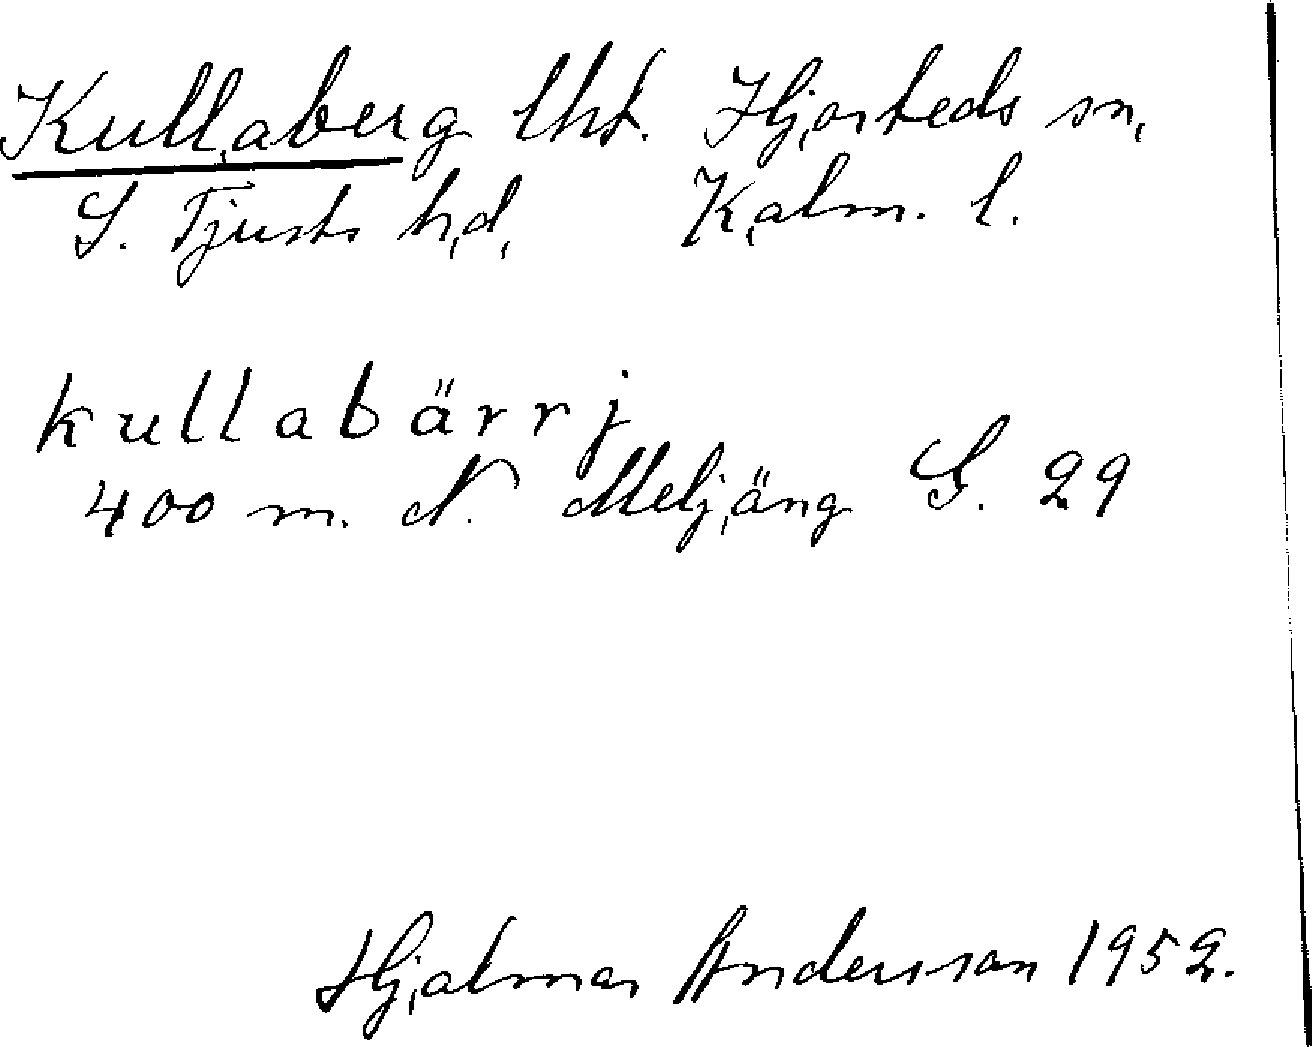 Kullaberg lht. Hjorteds sn,
S. Tjusts hd, Kalm. l.
kullabärrj
400 m. N. Meljäng G. 29
Hjalmar Andersson 1952.